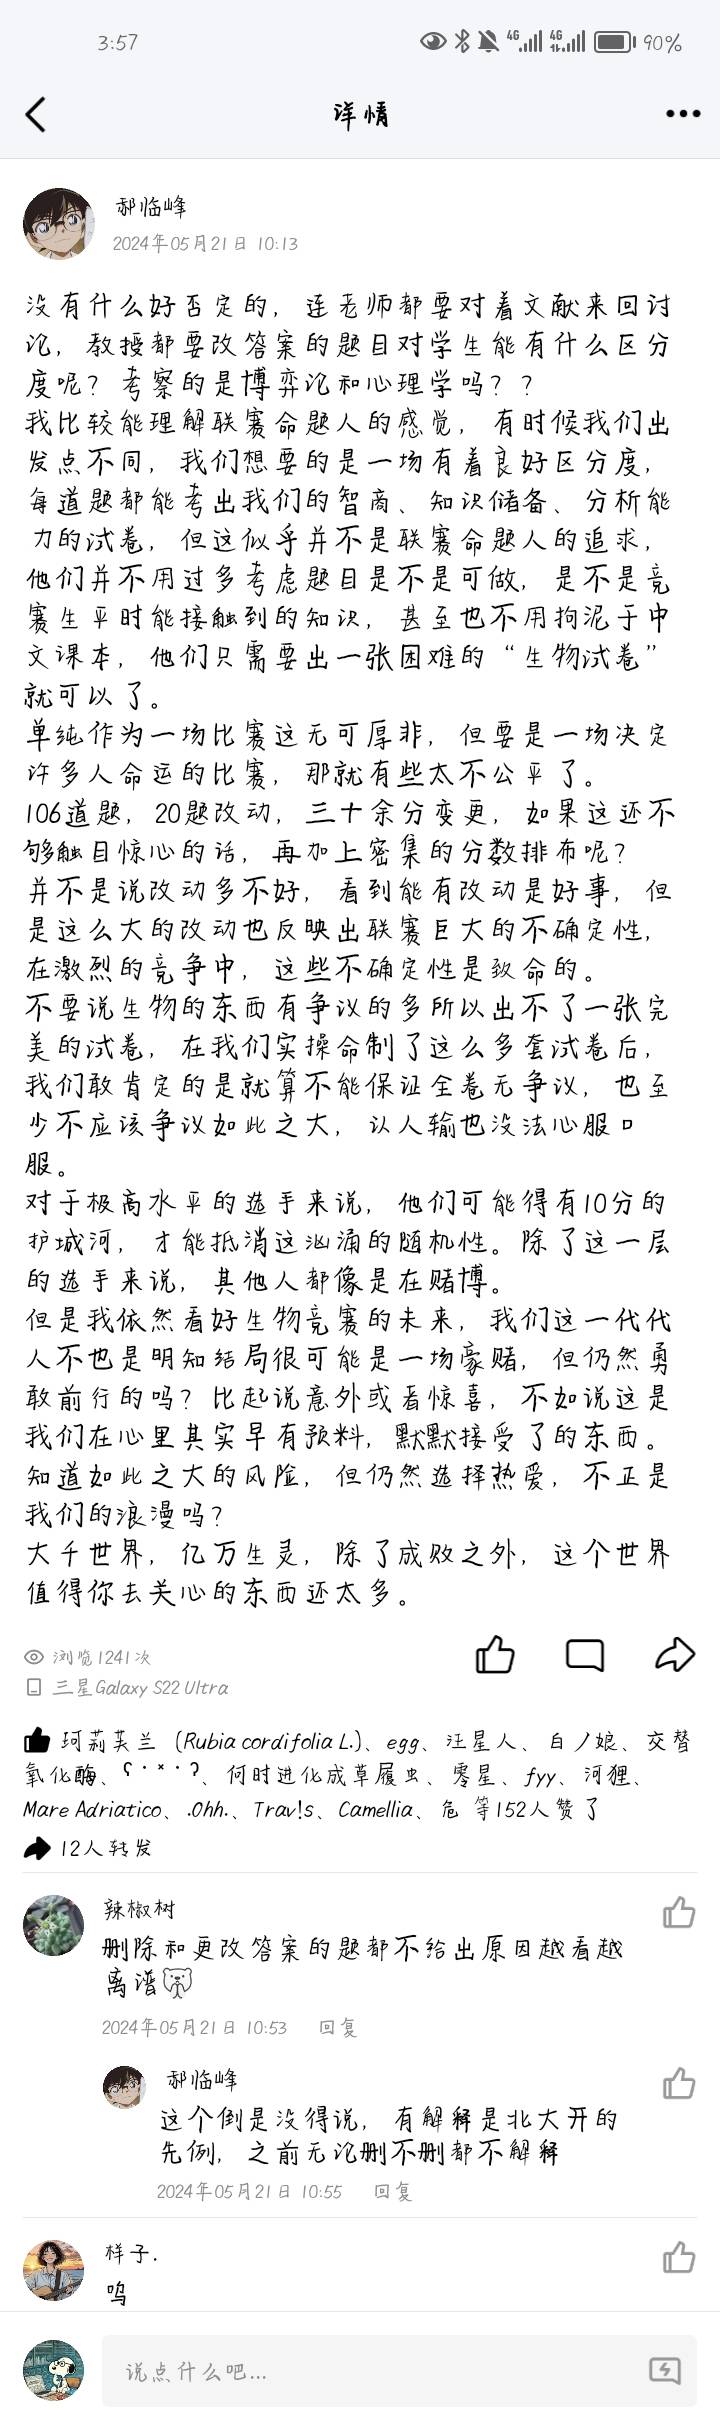 3:57
4G
4G
90%
详情
郝临峰
2024年05月21日 10:13
没有什么好否定的，连老师都要对着文献来回讨
论，教授都要改答案的题目对学生能有什么区分
度呢？考察的是博弈论和心理学吗？？
我比较能理解联赛命题人的感觉，有时候我们出
发点不同，我们想要的是一场有着良好区分度，
每道题都能考出我们的智商、知识储备、分析能
力的试卷，但这似乎并不是联赛命题人的追求，
他们并不用过多考虑题目是不是可做，是不是竞
赛生平时能接触到的知识，甚至也不用拘泥于中
文课本，他们只需要出一张困难的“生物试卷”
就可以了。
单纯作为一场比赛这无可厚非，但要是一场决定
许多人命运的比赛，那就有些太不公平了。
106道题，20题改动，三十余分变更，如果这还不
够触目惊心的话，再加上密集的分数排布呢？
并不是说改动多不好，看到能有改动是好事，但
是这么大的改动也反映出联赛巨大的不确定性，
在激烈的竞争中，这些不确定性是致命的。
不要说生物的东西有争议的多所以出不了一张完
美的试卷，在我们实操命制了这么多套试卷后，
我们敢肯定的是就算不能保证全卷无争议，也至
少不应该争议如此之大，认人输也没法心服口
服。
对于极高水平的选手来说，他们可能得有10分的
护城河，才能抵消这汹涌的随机性。除了这一层
的选手来说，其他人都像是在赌博。
但是我依然看好生物竞赛的未来，我们这一代代
人不也是明知结局很可能是一场豪赌，但仍然勇
敢前行的吗？比起说意外或者惊喜，不如说这是
我们在心里其实早有预料，默默接受了的东西。
知道如此之大的风险，但仍然选择热爱，不正是
我们的浪漫吗？
大千世界，亿万生灵，除了成败之外，这个世界
值得你去关心的东西还太多。
浏览1241次
三星Galaxy S22 Ultra
珂莉芙兰（Rubia cordifolia L.)、egg、汪星人、白ノ娘、交替
氧化酶、ʕ·ˣ·ʔ、何时进化成草履虫、零星、fyy、河狸、
Mare Adriatico、.Ohh.、Trav!s、Camellia、危 等152人赞了
12人转发
辣椒树
删除和更改答案的题都不给出原因越看越
离谱
2024年05月21日 10:53 回复
郝临峰
这个倒是没得说，有解释是北大开的
先例，之前无论删不删都不解释
2024年05月21日 10:55 回复
样子.
呜
说点什么吧...